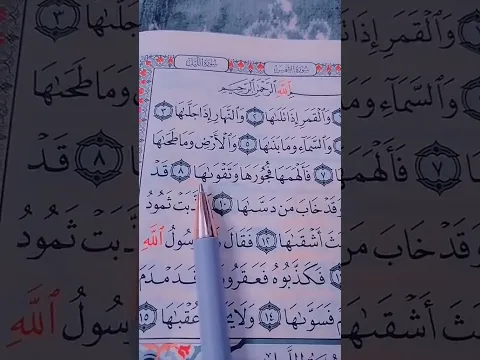 سُورَةُ الشَّمْسِ سُورَةُ اللَّيْلِ
ٱللَّهِ ٱلرَّحْمَٰنِ ٱلرَّحِيمِ
وَٱلْقَمَرِ إِذَا تَلَىٰهَا ٢ وَٱلنَّهَارِ إِذَا جَلَّىٰهَا ٣
وَٱلسَّمَآءِ وَمَا بَنَىٰهَا ٥ وَٱلْأَرْضِ وَمَا طَحَىٰهَا
٧ فَأَلْهَمَهَا فُجُورَهَا وَتَقْوَىٰهَا ٨ قَدْ
وَقَدْ خَابَ مَن دَسَّىٰهَا ١٠ ثَمُودُ
أَشْقَىٰهَا ١٢ فَقَالَ رَسُولُ ٱللَّهِ
فَكَذَّبُوهُ فَعَقَرُوهَا
فَسَوَّىٰهَا ١٤ وَلَا عُقْبَٰهَا ١٥